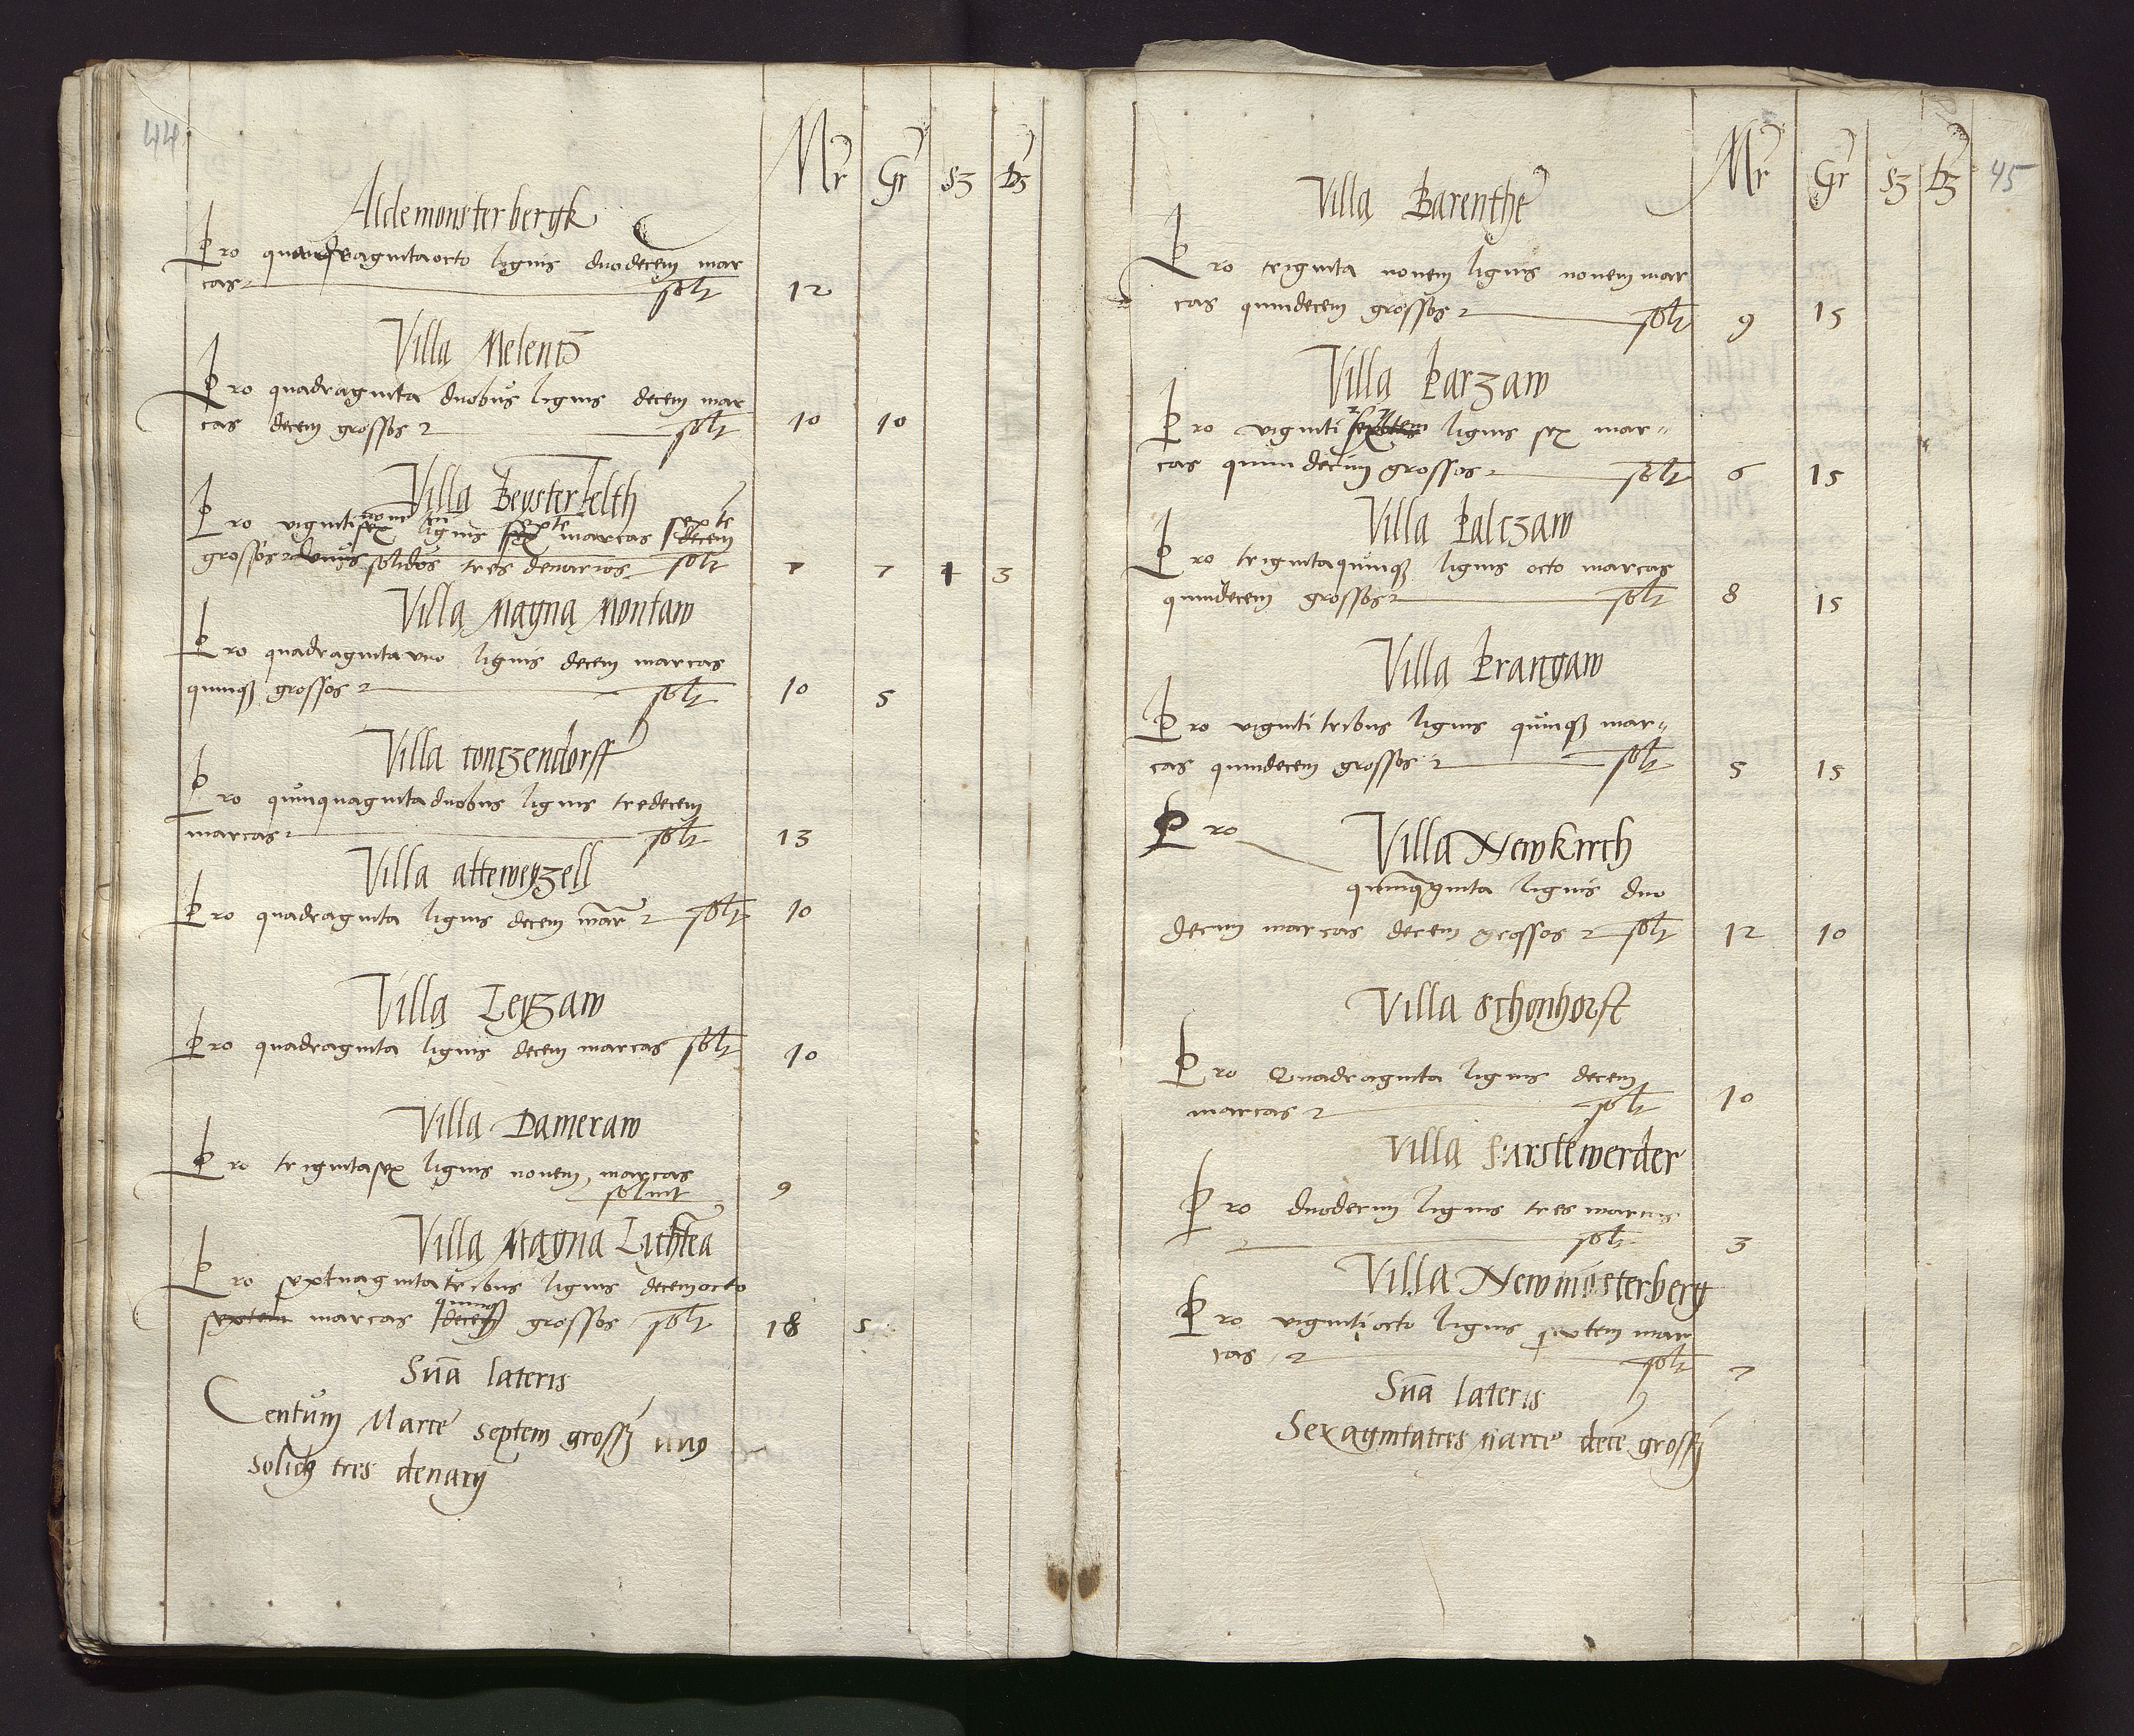 44
Mr Gr Sz Dz
Aldemonsterbergk
Pro quadragintaocto lignis duodecem mar
cas solt 12
Villa Melentz
Pro quadraginta duobus lignis decem mar
cas decem grossos solt 10 10
Villa Beysterfelth
nove septe septe
Pro vigintisex lignis sex marcas decem
grossos unus solidos tres denarios solt 7 7 1 3
Villa Magna Montaw
Pro quadragintauno lignis decem marcas
quinqz grossos solt 10 5
Villa Contzendorff
Pro quinquagintaduobus lignis tredecem
marcas solt 13
Villa alteweyzell
Pro quadraginta lignis decem mar solt 10
Villa Leyzaw
Pro quadraginta lignis decem marcas solt 10
Villa Dameraw
Pro trigintasex lignis novem marcas
solunt 9
Villa Magna Lichtea
Pro sextuagintatribus lignis decemocto
quinqz
septem marcas decem grossos solt 18 5
Sua lateris
Centum Marce septem grossz uno
solidz tres denarij
45
Mr Gr Sz Dz
Villa Barenthe
Pro triginta novem lignis novem mar
cas quindecem grossos solt 9 15
Villa Parzaw
Pro viginti septem lignis sex mar
cas quindecim grossos solt 6 15
Villa Palczaw
Pro trigintaquinqz lignis octo marcas
quindecem grossos solt 8 15
Villa Prangaw
Pro vigintitribus lignis quinqz mar
cas quindecem grossos solt 5 15
Pro
Villa Newkirch
quinquaginta lignis duo
decim marcas decem grossos solt 12 10
Villa Schonhorst
Pro Quadraginta lignis decem
marcas solt 10
Villa Furstewerder
Pro duodecim lignis tres marcas
solt 3
Villa Newmusterberg
Pro vigintiocto lignis septem mar
cas solt 7
Sua lateris
Sexagintatres Marce dece grossz